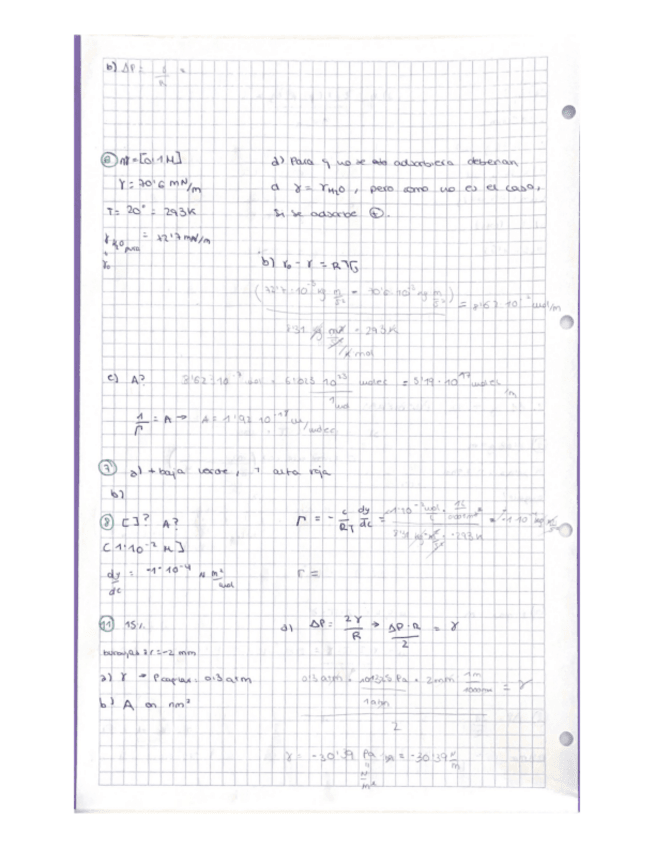 b) ΔP = γ/R =
⑥ [0'1M]
γ = 70'6 mN/m
T = 20° = 293K
γ H₂O pura = 72'7 mN/m
γ₀
d) Para q no se adsorbiera deberían
a γ = γ H₂O, pero como no es el caso,
si se adsorbe ⊕.
b) γ₀ - γ = RTΓ
(72'7·10⁻³ kg m/s² - 70'6·10⁻³ kg m/s²) = 8'62·10⁻⁷ mol/m
8'31 · 293K
c) A? 8'62·10⁻⁷ mol · 6'023 10²³ molec / 1 mol = 5'19·10¹⁷ molec
1/Γ = A → A = 1'92 10⁻¹⁸ m/molec
⑦ a) + baja verde, + alta roja
b)
⑧ [ ]? A?
[1·10⁻² M]
dγ/dc = -1·10⁻⁴ N m²/mol
Γ = - c/RT dγ/dc =
Γ =
⑪ 15%
burbujas r = 2 mm
a) γ → Pcapilar: 0'3 atm
b) A en nm²
a) ΔP = 2γ/R → ΔP·R/2 = γ
0'3 atm · 101325 Pa/1 atm · 2mm · 1m/1000mm / 2 = γ
γ = -30'39 Pa · m = -30'39 N/m
N/m²